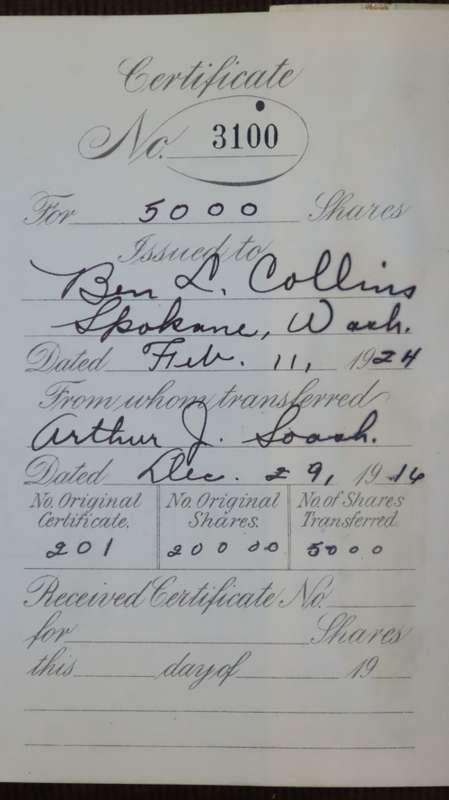 Certificate
No. 3100
For 5000 Shares
Issued to
Ben L. Collins
Spokane, Wash.
Dated Feb. 11, 1924
From whom transferred
Arthur J. Soash.
Dated Dec. 29, 1916
No. Original Certificate. No. Original Shares. No. of Shares Transferred
201 20000 5000
Received Certificate No.
for Shares
this day of 19